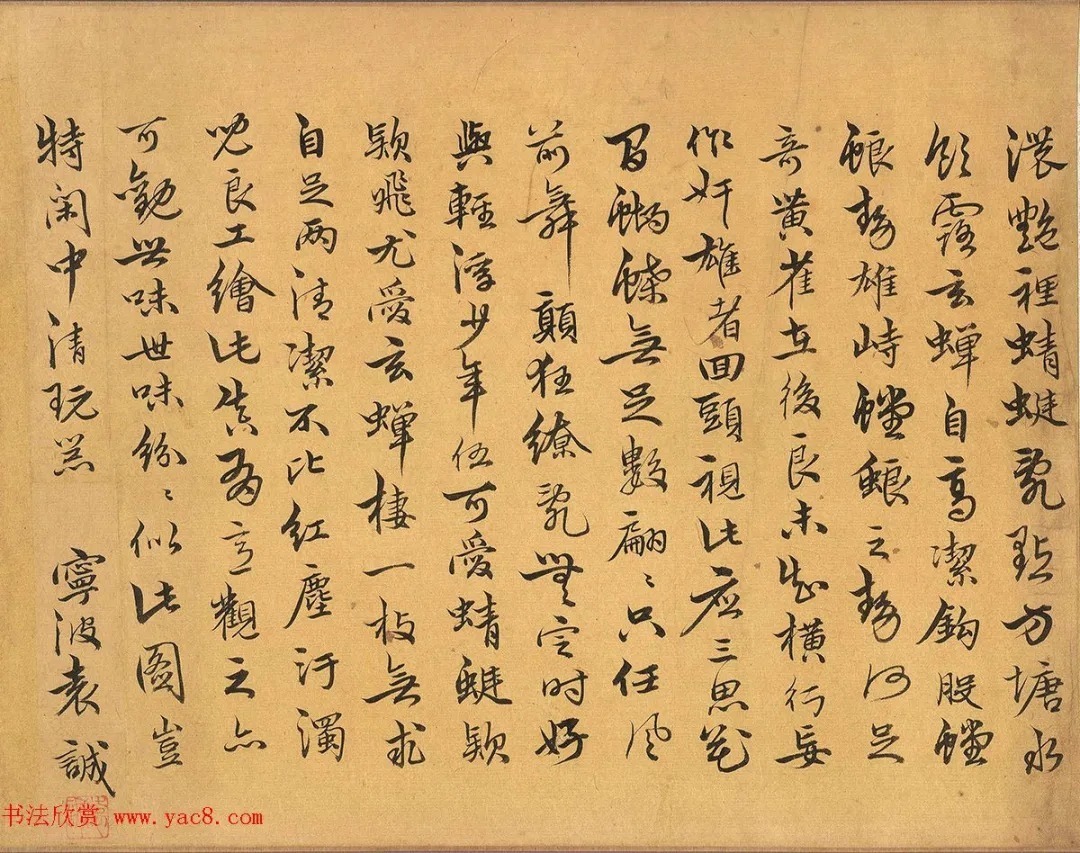 濃艷裡蜻蜓亂點方塘水
飲露玄蟬自高潔鈎股螳
蜋勢雄峙螳蜋之勢何足
奇黃雀在後良未知橫行妄
作奸雄者回頭視此應三思花
間蝴蝶無足數翩〻只任風
前舞顛狂繚亂無定時好
與輕浮少年伍可愛蜻蜓款
款飛尤愛玄蟬棲一枝無求
自足兩清潔不比紅塵汙濁
兒良工繪此真有意觀之亦
可觀世味世味紛〻似此圖豈
特閑中清玩器 寧波袁誠
书法欣赏 www.yac8.com